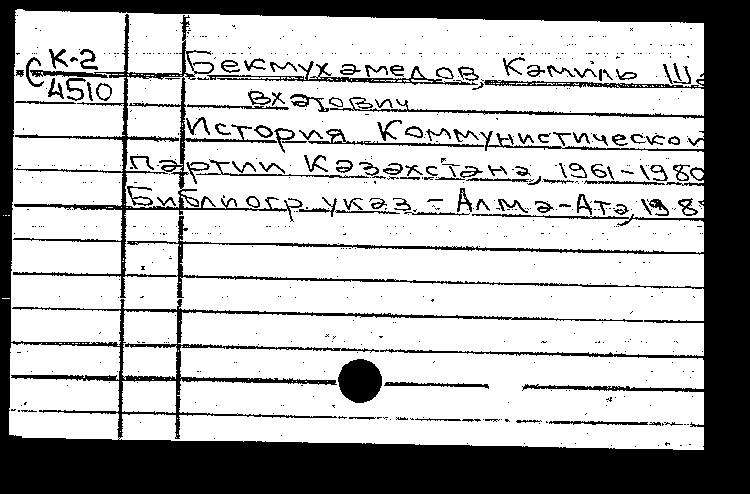 С К-2 Бекмухамедов, Камиль Ша
4510 вхатович
История Коммунистической
партии Казахстана, 1961-1980
Библиогр. указ. - Алма-Ата, 198